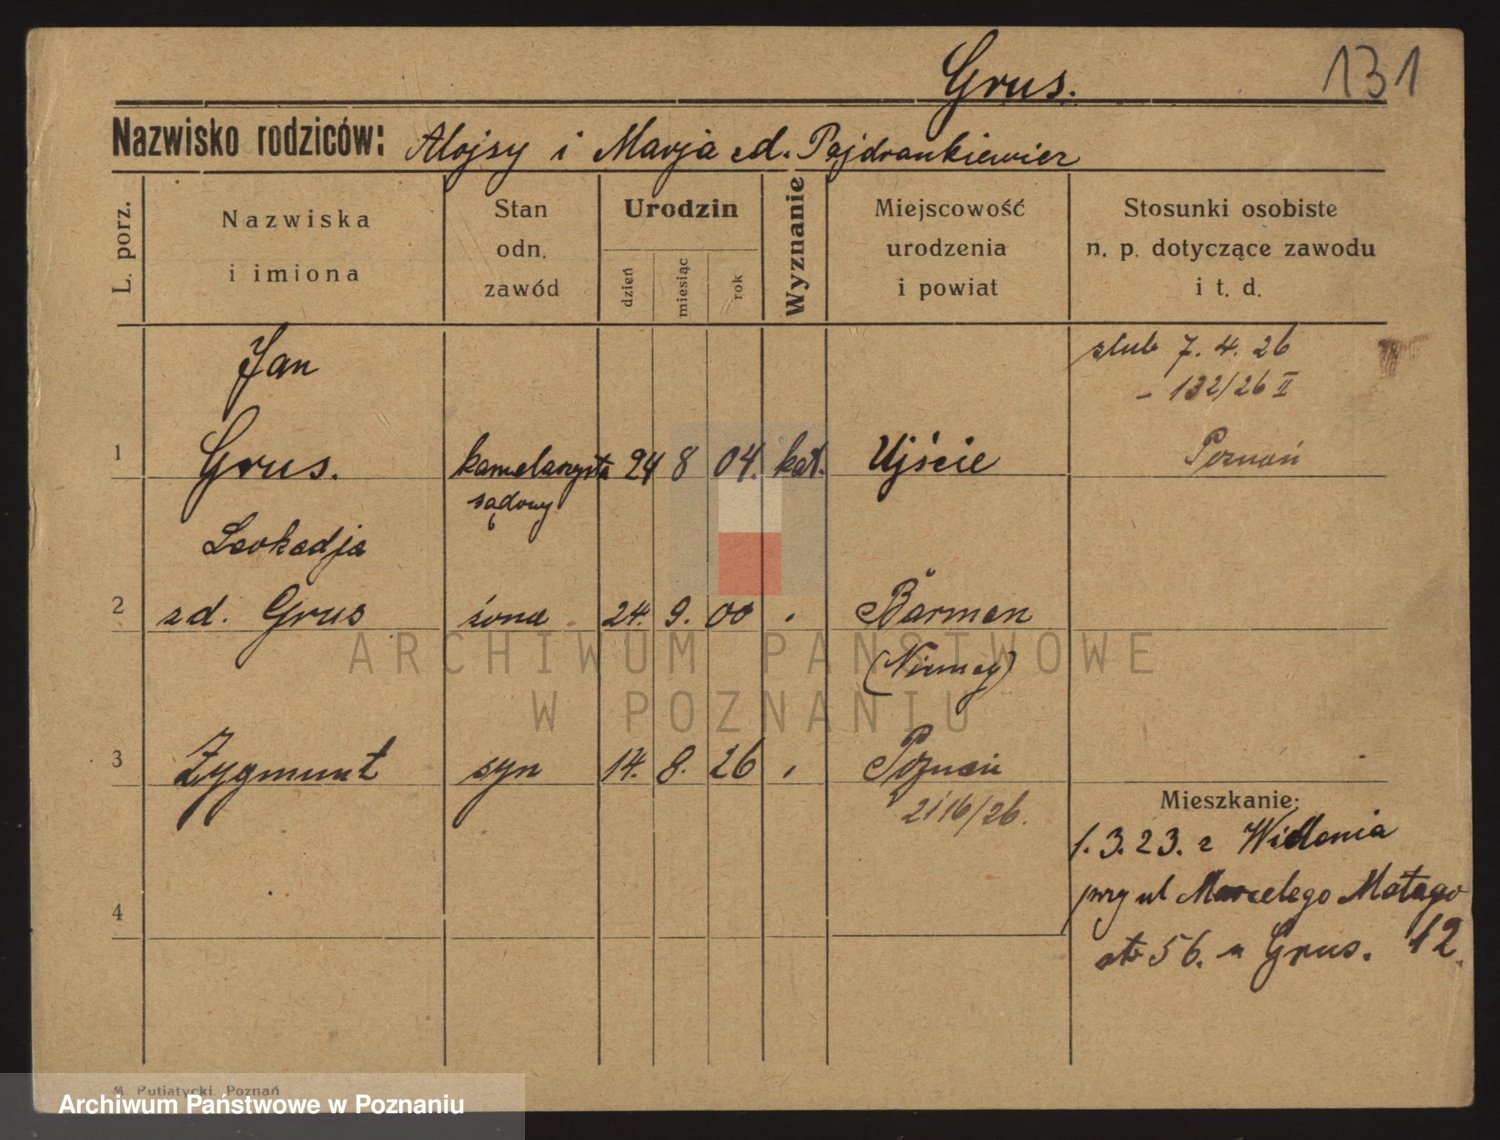 Grus. 131
Nazwisko rodziców: Alojsy i Marja zd. Pajdrankiewicz
L. porz.
Nazwiska
i imiona
Stan
odn.
zawód
Urodzin
dzień
miesiąc
rok
Wyznanie
Miejscowość
urodzenia
i powiat
Stosunki osobiste
n. p. dotyczące zawodu
i t. d.
Jan
ślub 7. 4. 26
- 132/26 II
1 Grus. 24 8 04. kat. Ujście Poznań
sądowy
Leokadja
2 zd. Grus żona 24. 9. 00 Barmen
(Niemcy)
ARCHIWUM PAŃSTWOWE
W POZNANIU
3 Zygmunt syn 14. 8. 26 Poznań
2116/26.
Mieszkanie:
1. 3. 23. z
przy ul Marcelego Motego
4
56. u Grus. 12.
M. Putiatycki, Poznań
Archiwum Państwowe w Poznaniu